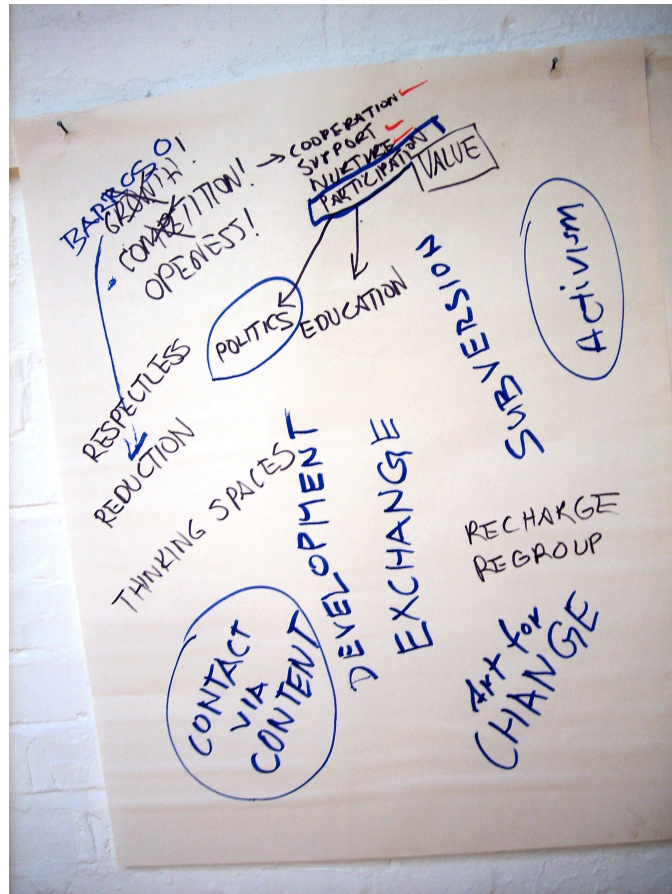 BARROSO!
GROWTH!
COMPETITION! → COOPERATION
OPENESS!
SUPPORT
NURTURE
PARTICIPATION
VALUE
POLITICS
EDUCATION
SUBVERSION
ACTIVISM
RESPECTLESS
REDUCTION
THINKING SPACES
DEVELOPMENT
EXCHANGE
RECHARGE
REGROUP
CONTACT
VIA
CONTENT
Art for
CHANGE